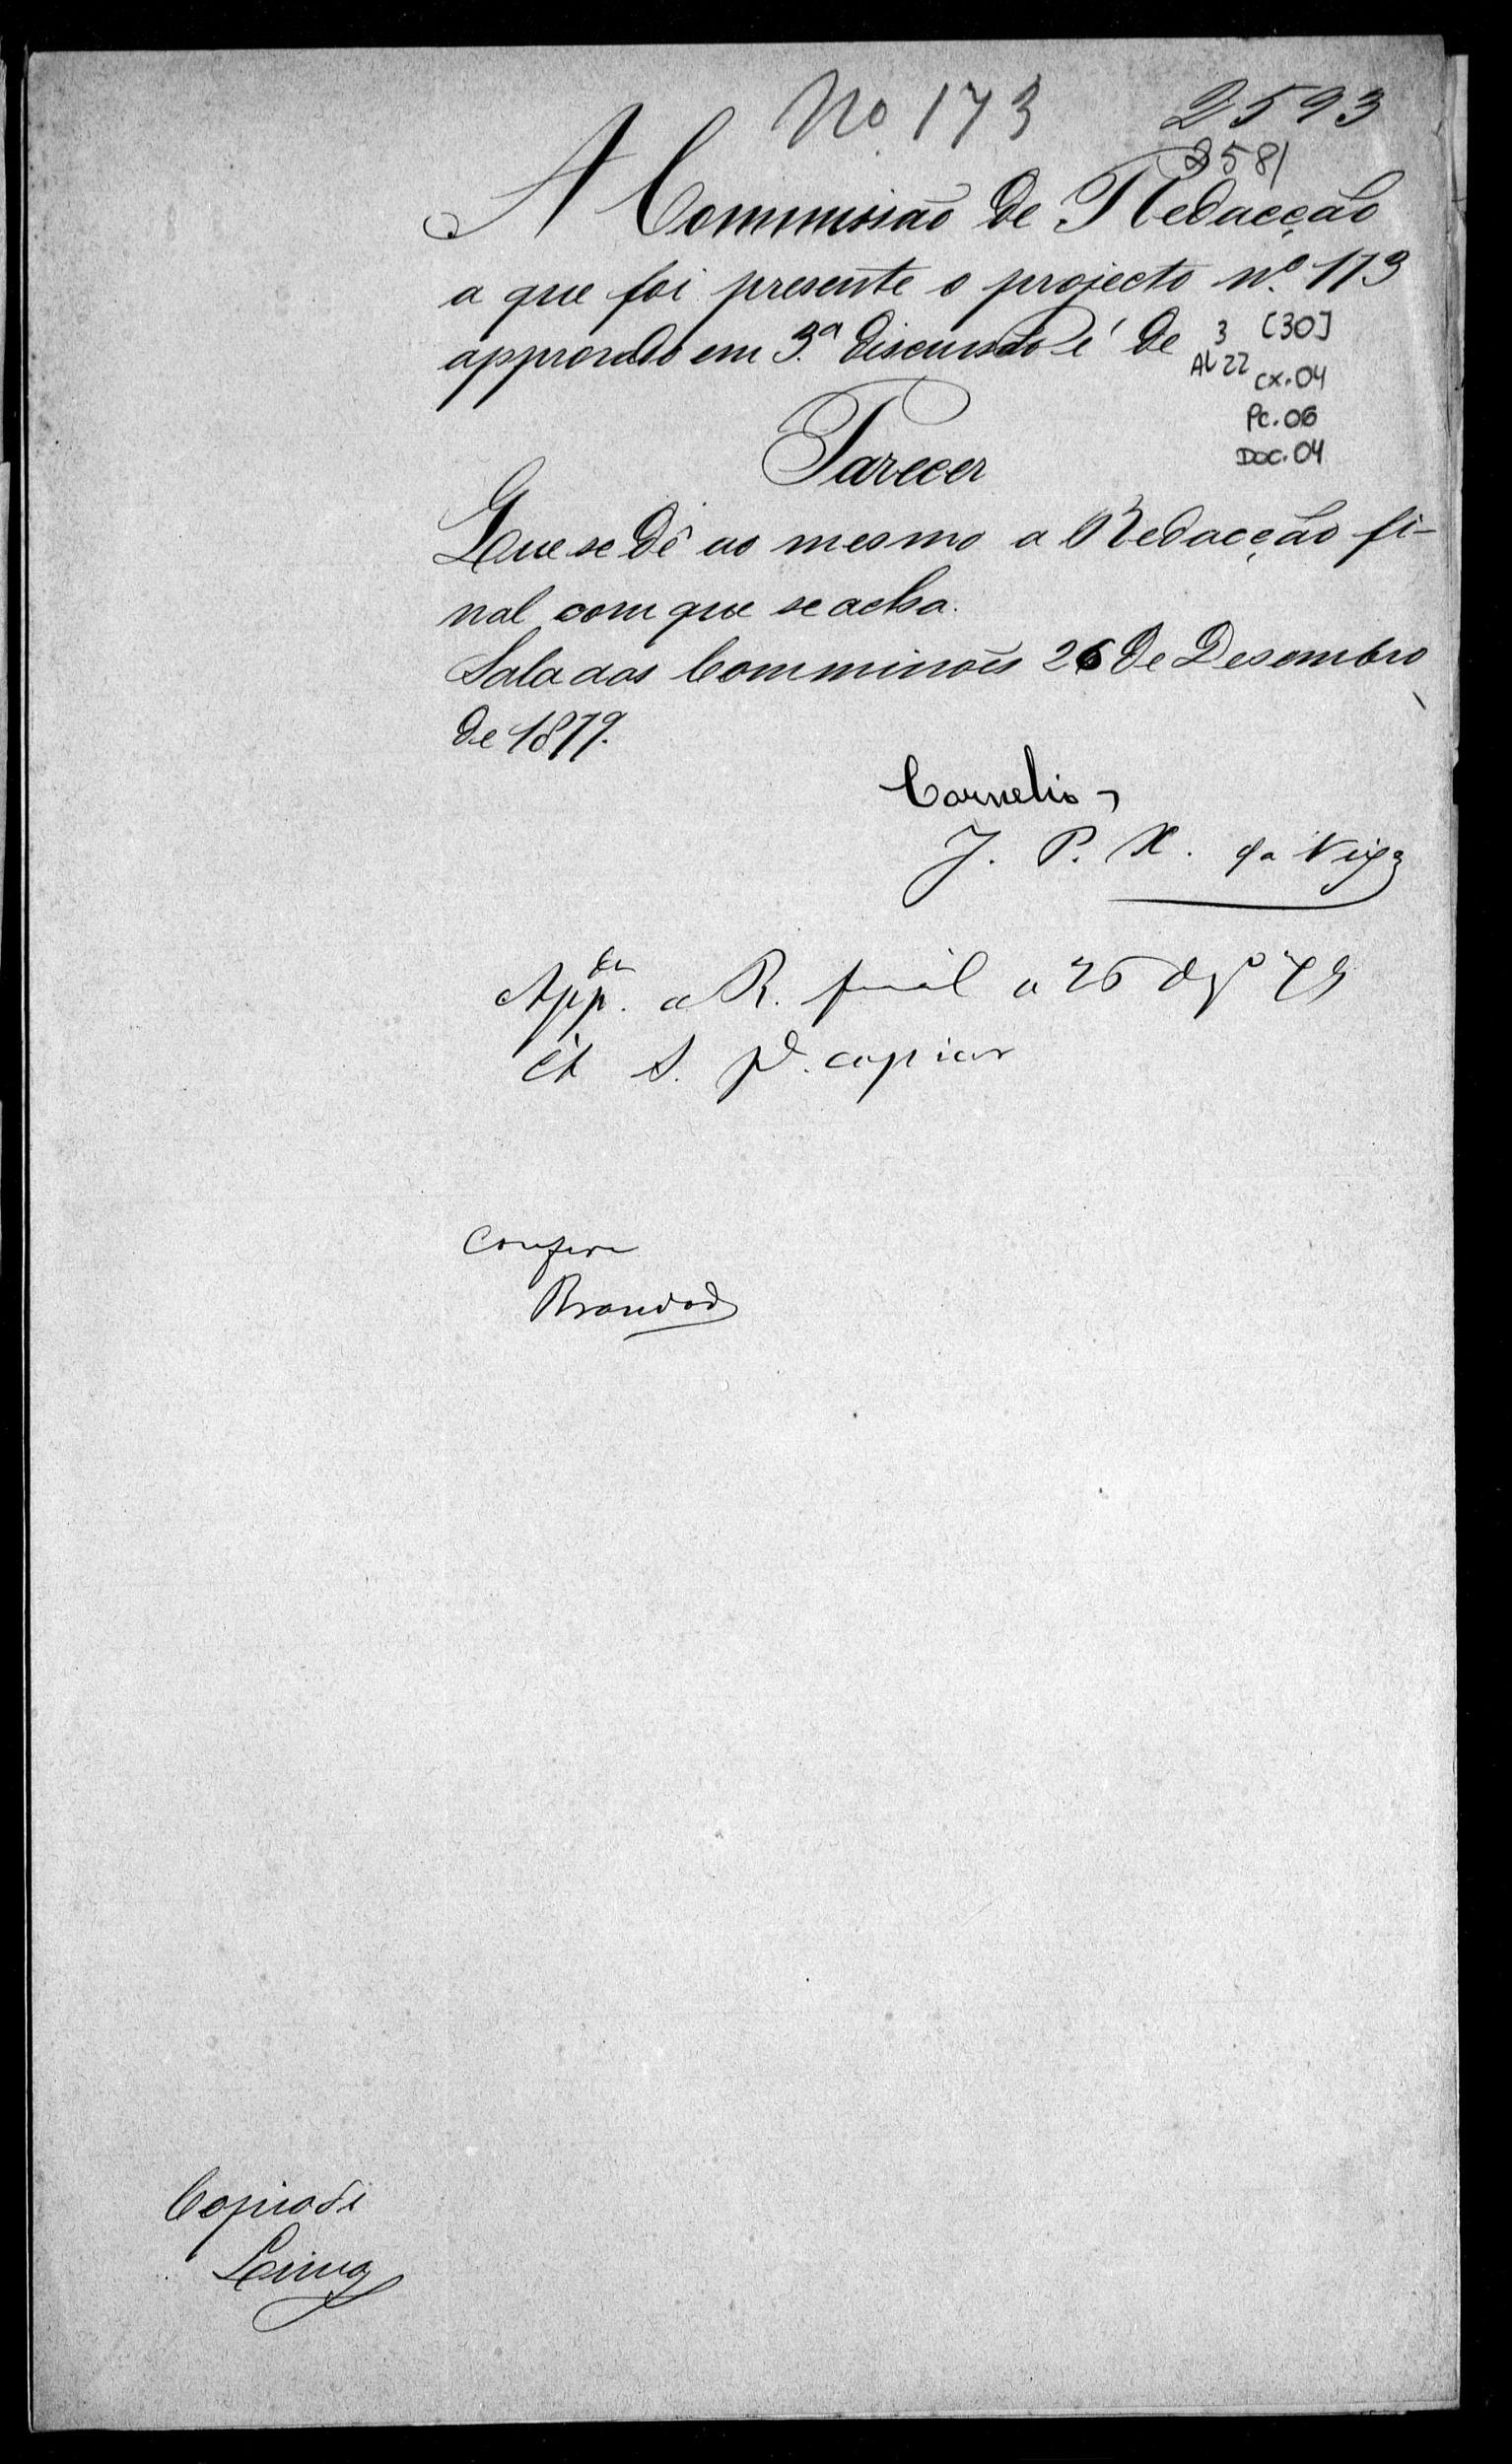 No 173
2593
2581
A Commissão de Redacção
a que foi presente o projecto nº. 173
approvado em 3.ª discussão é de
3 [30]
AL 22 CX.04
PC.06
DOC.04
Parecer
Que se dê ao mesmo a Redacção fi-
nal com que se acha.
Sala das Commissões 26 de Desembro
de 1879.
Cornelio
J. P. X. da Veiga
App.da a R. final a 26 dzº 79
Á S. pª. copiar
Confere
Brandão
Copiado
Lima